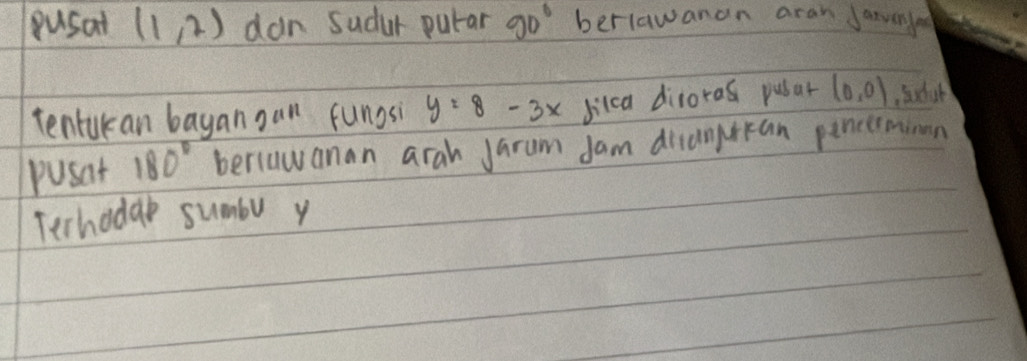 pusat (1,2) dan sudut putar 90° berlawanan arah
Tentukan bayangan fungsi y = 8 - 3x jika dirotasi pusat (0,0), sudut
pusat 180° berlawanan arah jarum jam dilanjutkan pencerminan
Terhadap sumbu y